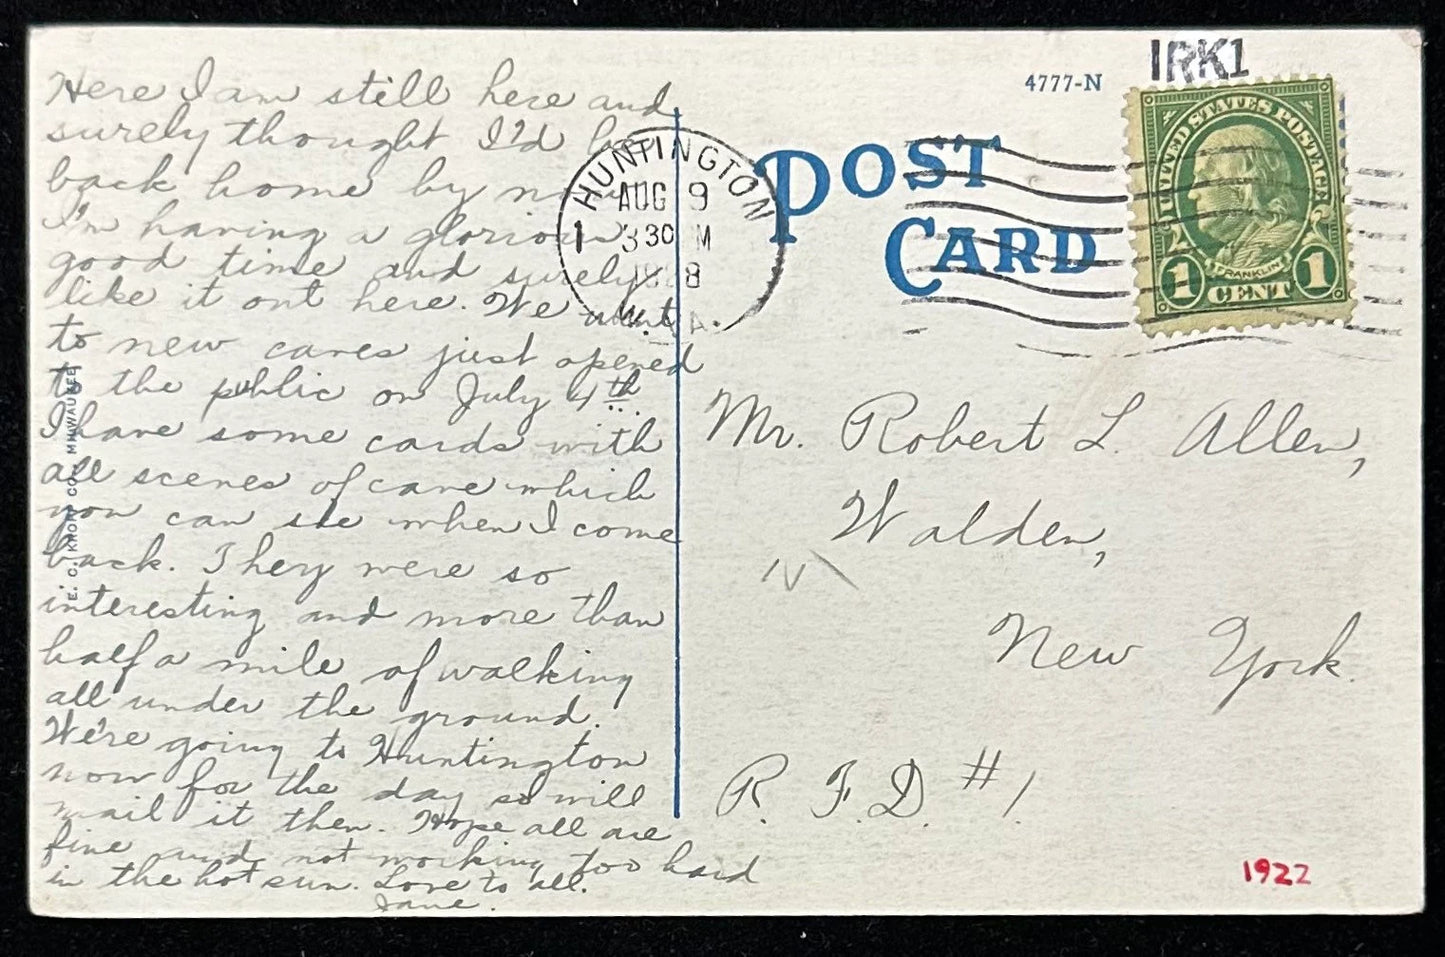 Here I am still here and
surely thought I'd be
back home by now
I'm having a glorious
good time and surely
like it out here. We went
to new caves just opened
to the public on July 4th.
I have some cards with
all scenes of cave which
you can see when I come
back. They were so
interesting and more than
half a mile of walking
all under the ground.
We're going to Huntington
now for the day so will
mail it then. Hope all are
fine and not working too hard
in the hot sun. Love to all.
Jane.
E. C. KROPP CO., MILWAUKEE
HUNTINGTON
AUG 9
1 3 30 M
W. VA.
4777-N
IRK1
POST
CARD
UNITED STATES POSTAGE
FRANKLIN
1 CENT 1
Mr. Robert L. Allen,
Walden,
N
New York.
R. F. D. #1.
1922